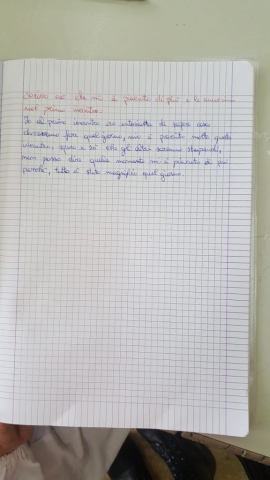 Scrivo ciò che mi è piaciuto di più e le emozioni
nel primo incontro.
Io al primo incontro ero interessata di sapere cosa
dovevamo fare quel giorno, mi è piaciuto molto quell'
incontro, spero e so che gli altri saranno stupendi,
non posso dire quale momento mi è piaciuto di più
perché, tutto è stato magnifico quel giorno.